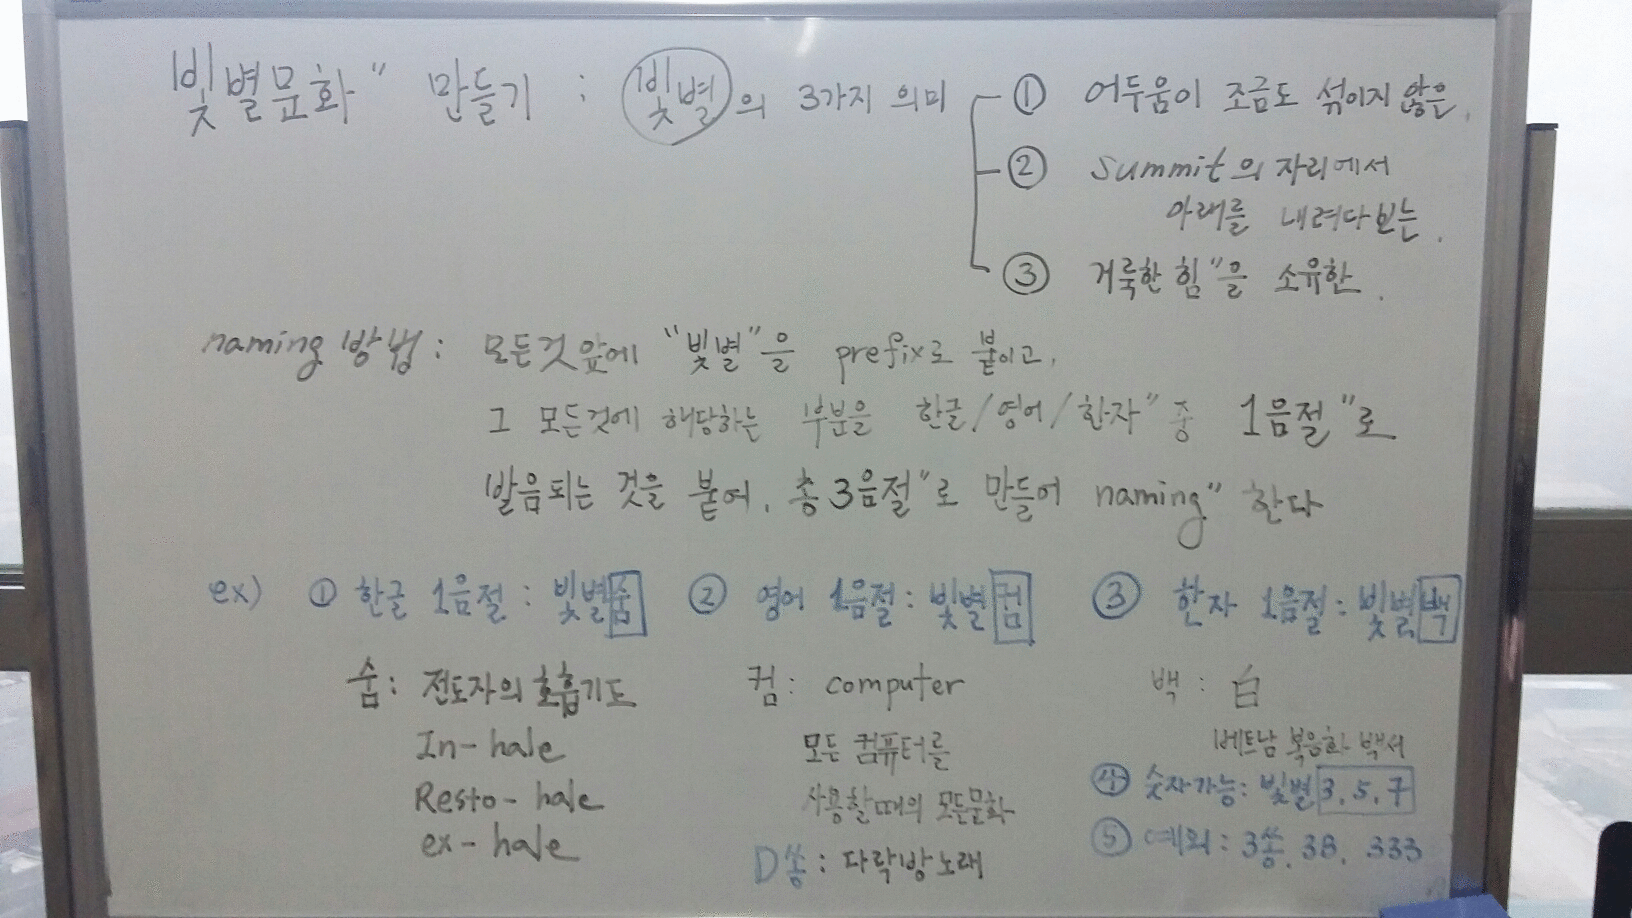 빛별문화" 만들기 : 빛별의 3가지 의미
① 어두움이 조금도 섞이지 않은.
② summit의 자리에서
아래를 내려다보는.
③ 거룩한 힘"을 소유한.
naming 방법 : 모든것 앞에 "빛별"을 prefix로 붙이고,
그 모든것에 해당하는 부분을 한글/영어/한자" 중 1음절"로
발음되는 것을 붙여, 총 3음절"로 만들어 naming" 한다
ex) ① 한글 1음절 : 빛별숨
숨 : 전도자의 호흡기도
In-hale
Resto-hale
ex-hale
② 영어 1음절 : 빛별컴
컴 : computer
모든 컴퓨터를
사용할때의 모든문화
D쏭 : 다락방노래
③ 한자 1음절 : 빛별백
백 : 白
베트남 복음화 백서
④ 숫자가능 : 빛별3, 5, 7
⑤ 예외 : 3쏭. 38. 333